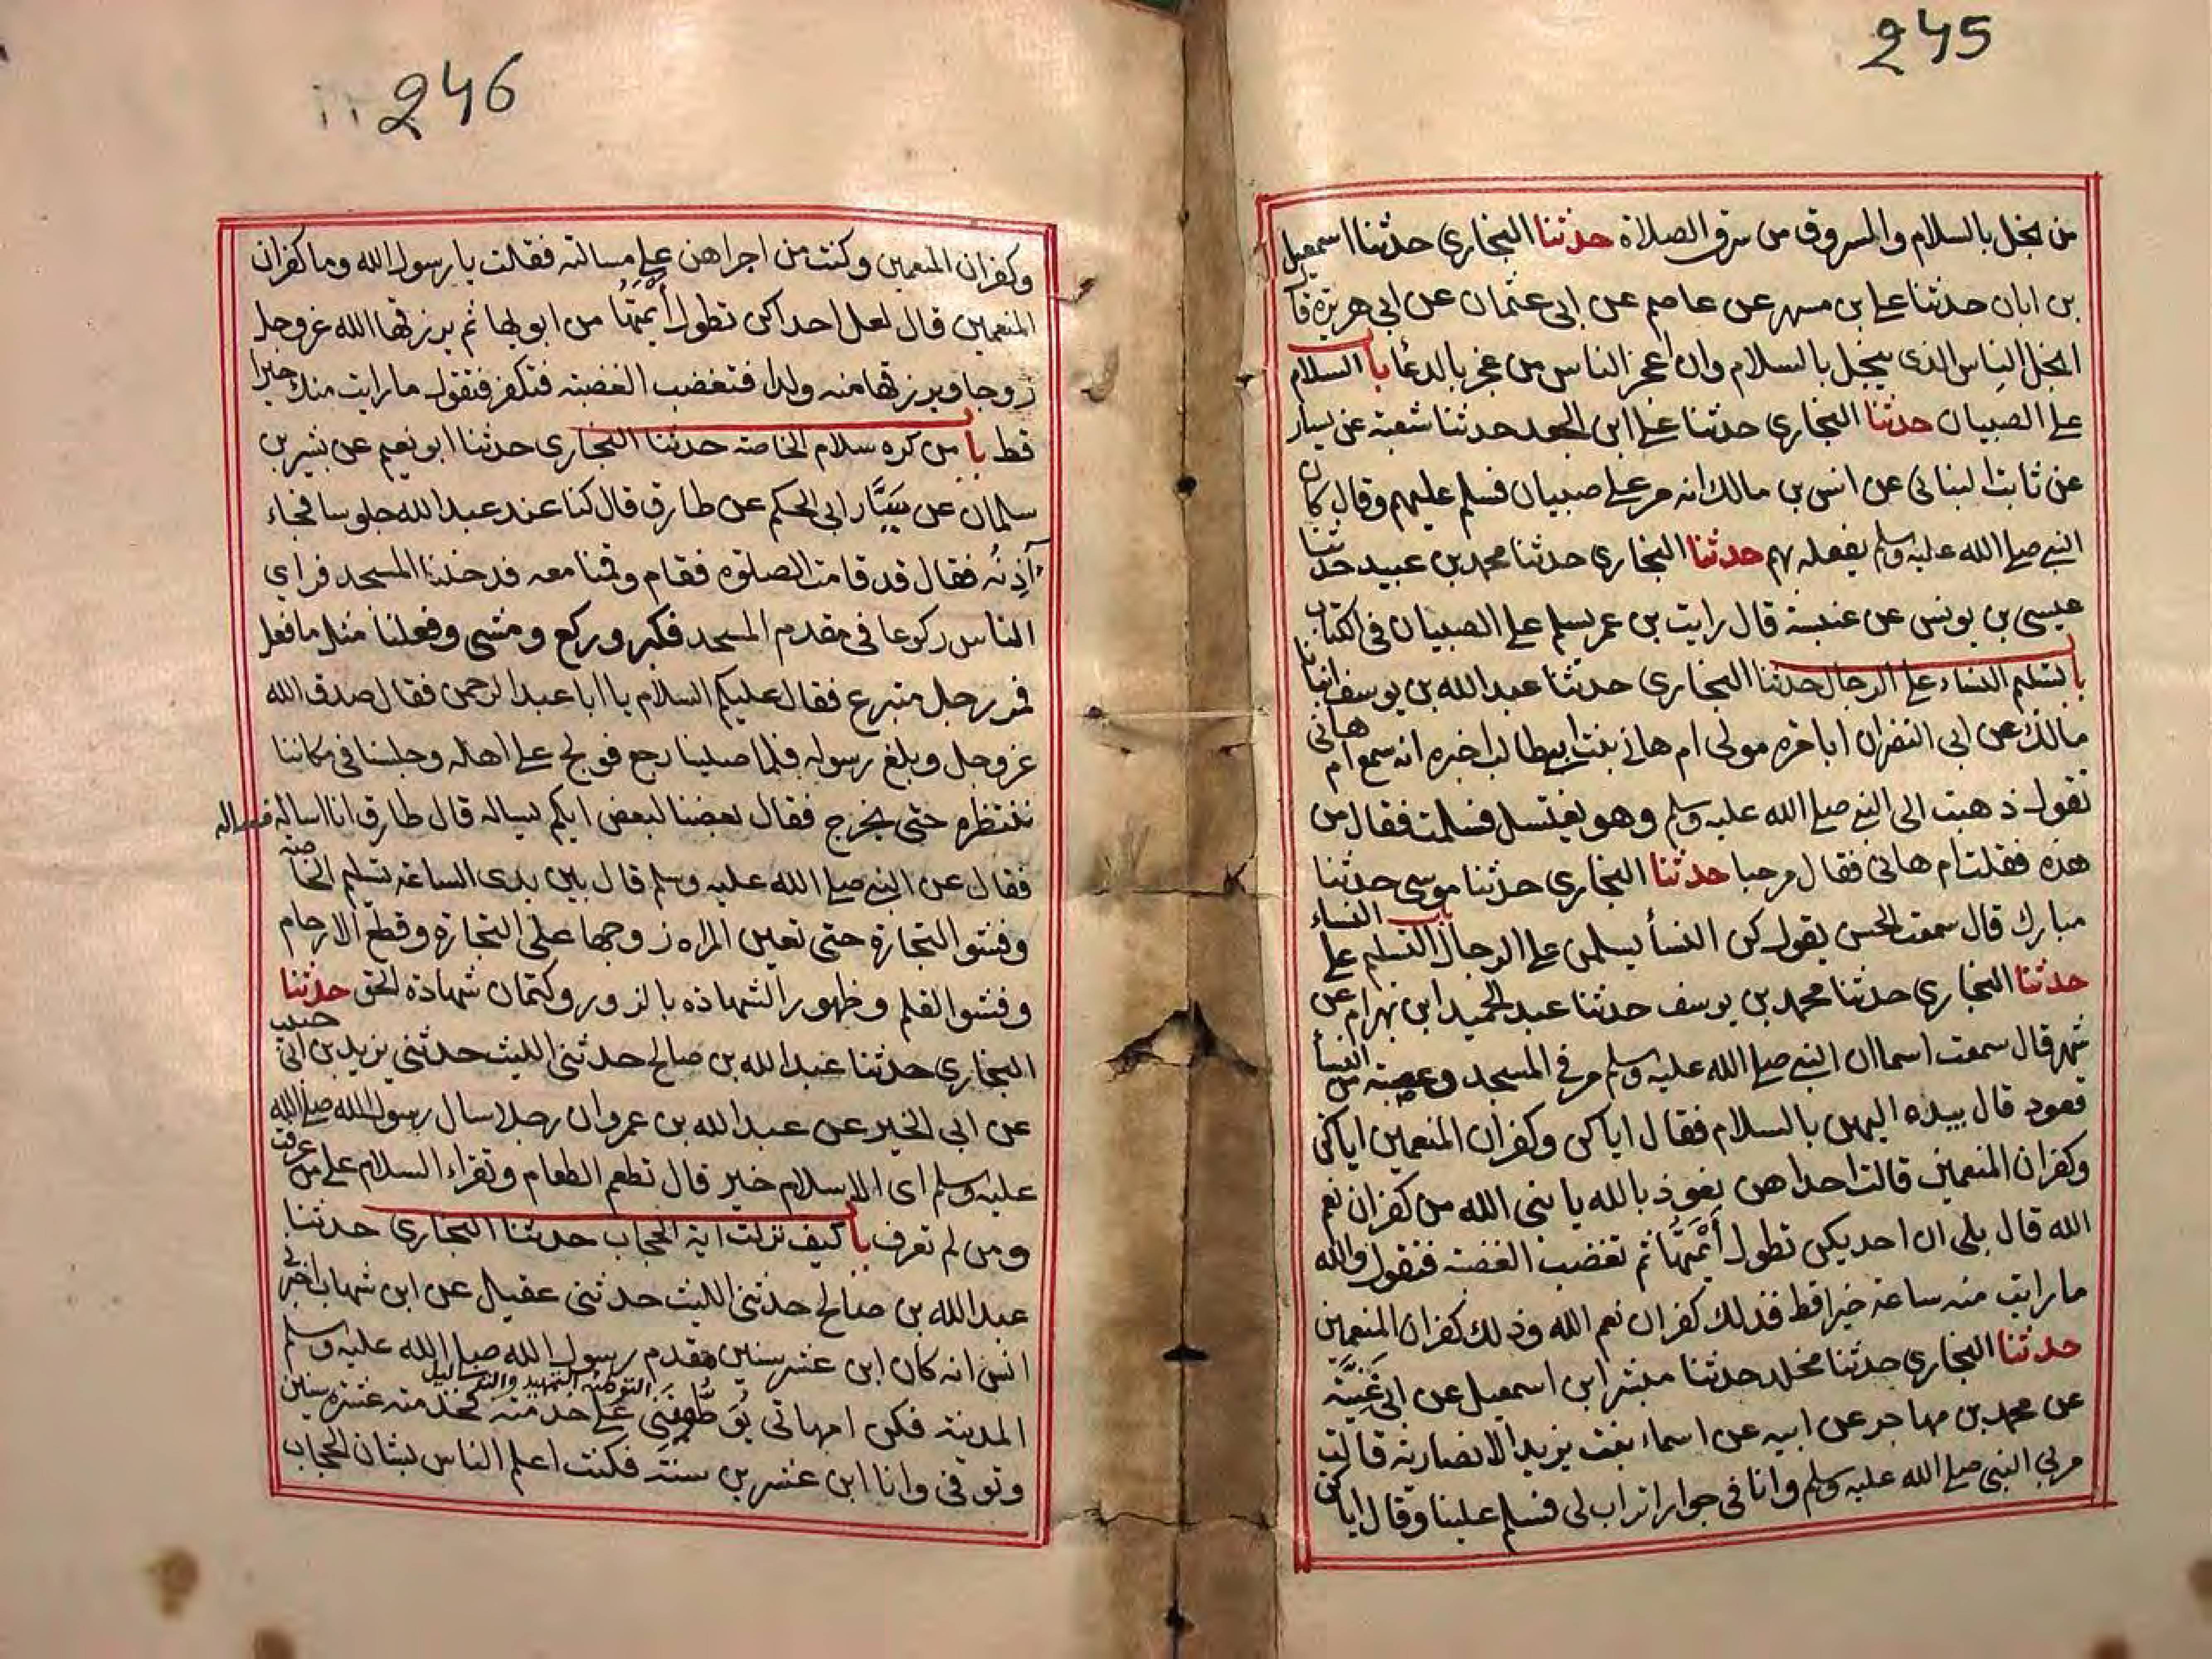 245
من بخل بالسلام والمسروق من سرق الصلاة حدثنا البخاري حدثنا اسمعيل
بن ابان حدثنا علي بن مسهر عن عاصم عن ابي عثمان عن ابي هريرة قال
ابخل الناس الذي يبخل بالسلام وان اعجز الناس من عجز بالدعا باب السلام
علي الصبيان حدثنا البخاري حدثنا علي ابن الجعد حدثنا شعبة عن سيار
عن ثابت البناني عن انس بن مالك انه مر علي صبيان فسلم عليهم وقال كان
النبي صلي الله عليه وسلم يفعله بهم حدثنا البخاري حدثنا محمد بن عبيد حدثنا
عيسى بن يونس عن عنبسة قال رايت بن عمر يسلم علي الصبيان في الكتاب
باب تسليم النساء علي الرجال حدثنا البخاري حدثنا عبد الله بن يوسف انبانا
مالك عن ابي النضر ان ابا مره مولى ام هاني بنت ابيطالب اخبره انه سمع ام هاني
تقول ذهبت الى النبي صلي الله عليه وسلم وهو يغتسل فسلمت فقال من
هذه فقلت ام هانى فقال مرحبا حدثنا البخاري حدثنا موسى حدثنا
مبارك قال سمعت الحسن يقول كن النسأ يسلمن علي الرجال باب التسليم علي النساء
حدثنا البخاري حدثنا محمد بن يوسف حدثنا عبد الحميد ابن بهرام عن
شهر قال سمعت اسما ان النبي صلي الله عليه وسلم مر في المسجد وعصبة من النسأ
قعود قال بيده اليهن بالسلام فقال اياكن وكفران المنعمين اياكن
وكفران المنعمين قالت احداهن نعوذ بالله يا نبى الله من كفران نعم
الله قال بلى ان احديكن تطول أَيْمَتُهَا ثم تغضب الغضبة فتقول والله
ما رايت منه ساعة خيرا قط فذلك كفران نعم الله وذلك كفران المنعمين
حدثنا البخاري حدثنا مخلد حدثنا مبشر ابن اسمعيل عن ابي غَنِيَّة
عن محمد بن مهاجر عن ابيه عن اسماء بنت يزيد الانصارية قالت
مر بي النبي صلي الله عليه وسلم وانا في جوار اتراب لي فسلم علينا وقال اياكن
246
وكفران المنعمين وكنت من اجراهن علي مسالته فقلت يا رسول الله وما كفران
المنعمين قال لعل احداكن تطول أَيْمَتُهَا من ابويها ثم يرزقها الله عزوجل
زوجا ويرزقها منه ولدا فتغضب الغضبة فتكفر فتقول ما رايت منك خيرا
قط باب من كره سلام الخاصة حدثنا البخاري حدثنا ابو نعيم عن بشير بن
سلمان عن سَيَّار ابي الحكم عن طارق قال كنا عند عبد الله جلوسا فجاء
آذِنُه فقال قد قامت الصلوة فقام وقمنا معه فدخلنا المسجد فراي
الناس ركوعا في مقدم المسجد فكبر وركع ومشى وفعلنا مثل ما فعل
فمر رجل متبرع فقال عليكم السلام يا ابا عبد الرحمن فقال صدق الله
عزوجل وبلغ رسوله فلما صلينا رجع فولج علي اهله وجلسنا في مكاننا
ننتظره حتى يخرج فقال بعضنا لبعض ايكم يساله قال طارق انا اساله فساله
فقال عن النبي صلي الله عليه وسلم قال بين يدى الساعة تسليم الخاصة
وفشو التجارة حتى تعين المراه زوجها على التجارة وقطع الارحام
وفشو القلم وظهور الشهاده بالزور وكتمان شهادة الحق حدثنا
البخاري حدثنا عبد الله بن صالح حدثني الليث حدثني يزيد بن ابي حبيب
عن ابي الخير عن عبد الله بن عمرو ان رجلا سال رسول الله صلي الله
عليه وسلم اى الاسلام خير قال تطعم الطعام وتقراء السلام علي من عرفت
ومن لم تعرف باب كيف نزلت اية الحجاب حدثنا البخاري حدثنا
عبد الله بن صالح حدثني الليث حدثني عقيل عن ابن شهاب اخبرني
انس انه كان ابن عشر سنين مقدم رسول الله صلي الله عليه وسلم
المدينة فكن امهاتي يُوَطِّونَنِى علي خدمته فخدمته عشرة سنين
التوطئه التمهيد والتذليل
وتوفي وانا ابن عشرين سنة فكنت اعلم الناس بشان الحجاب